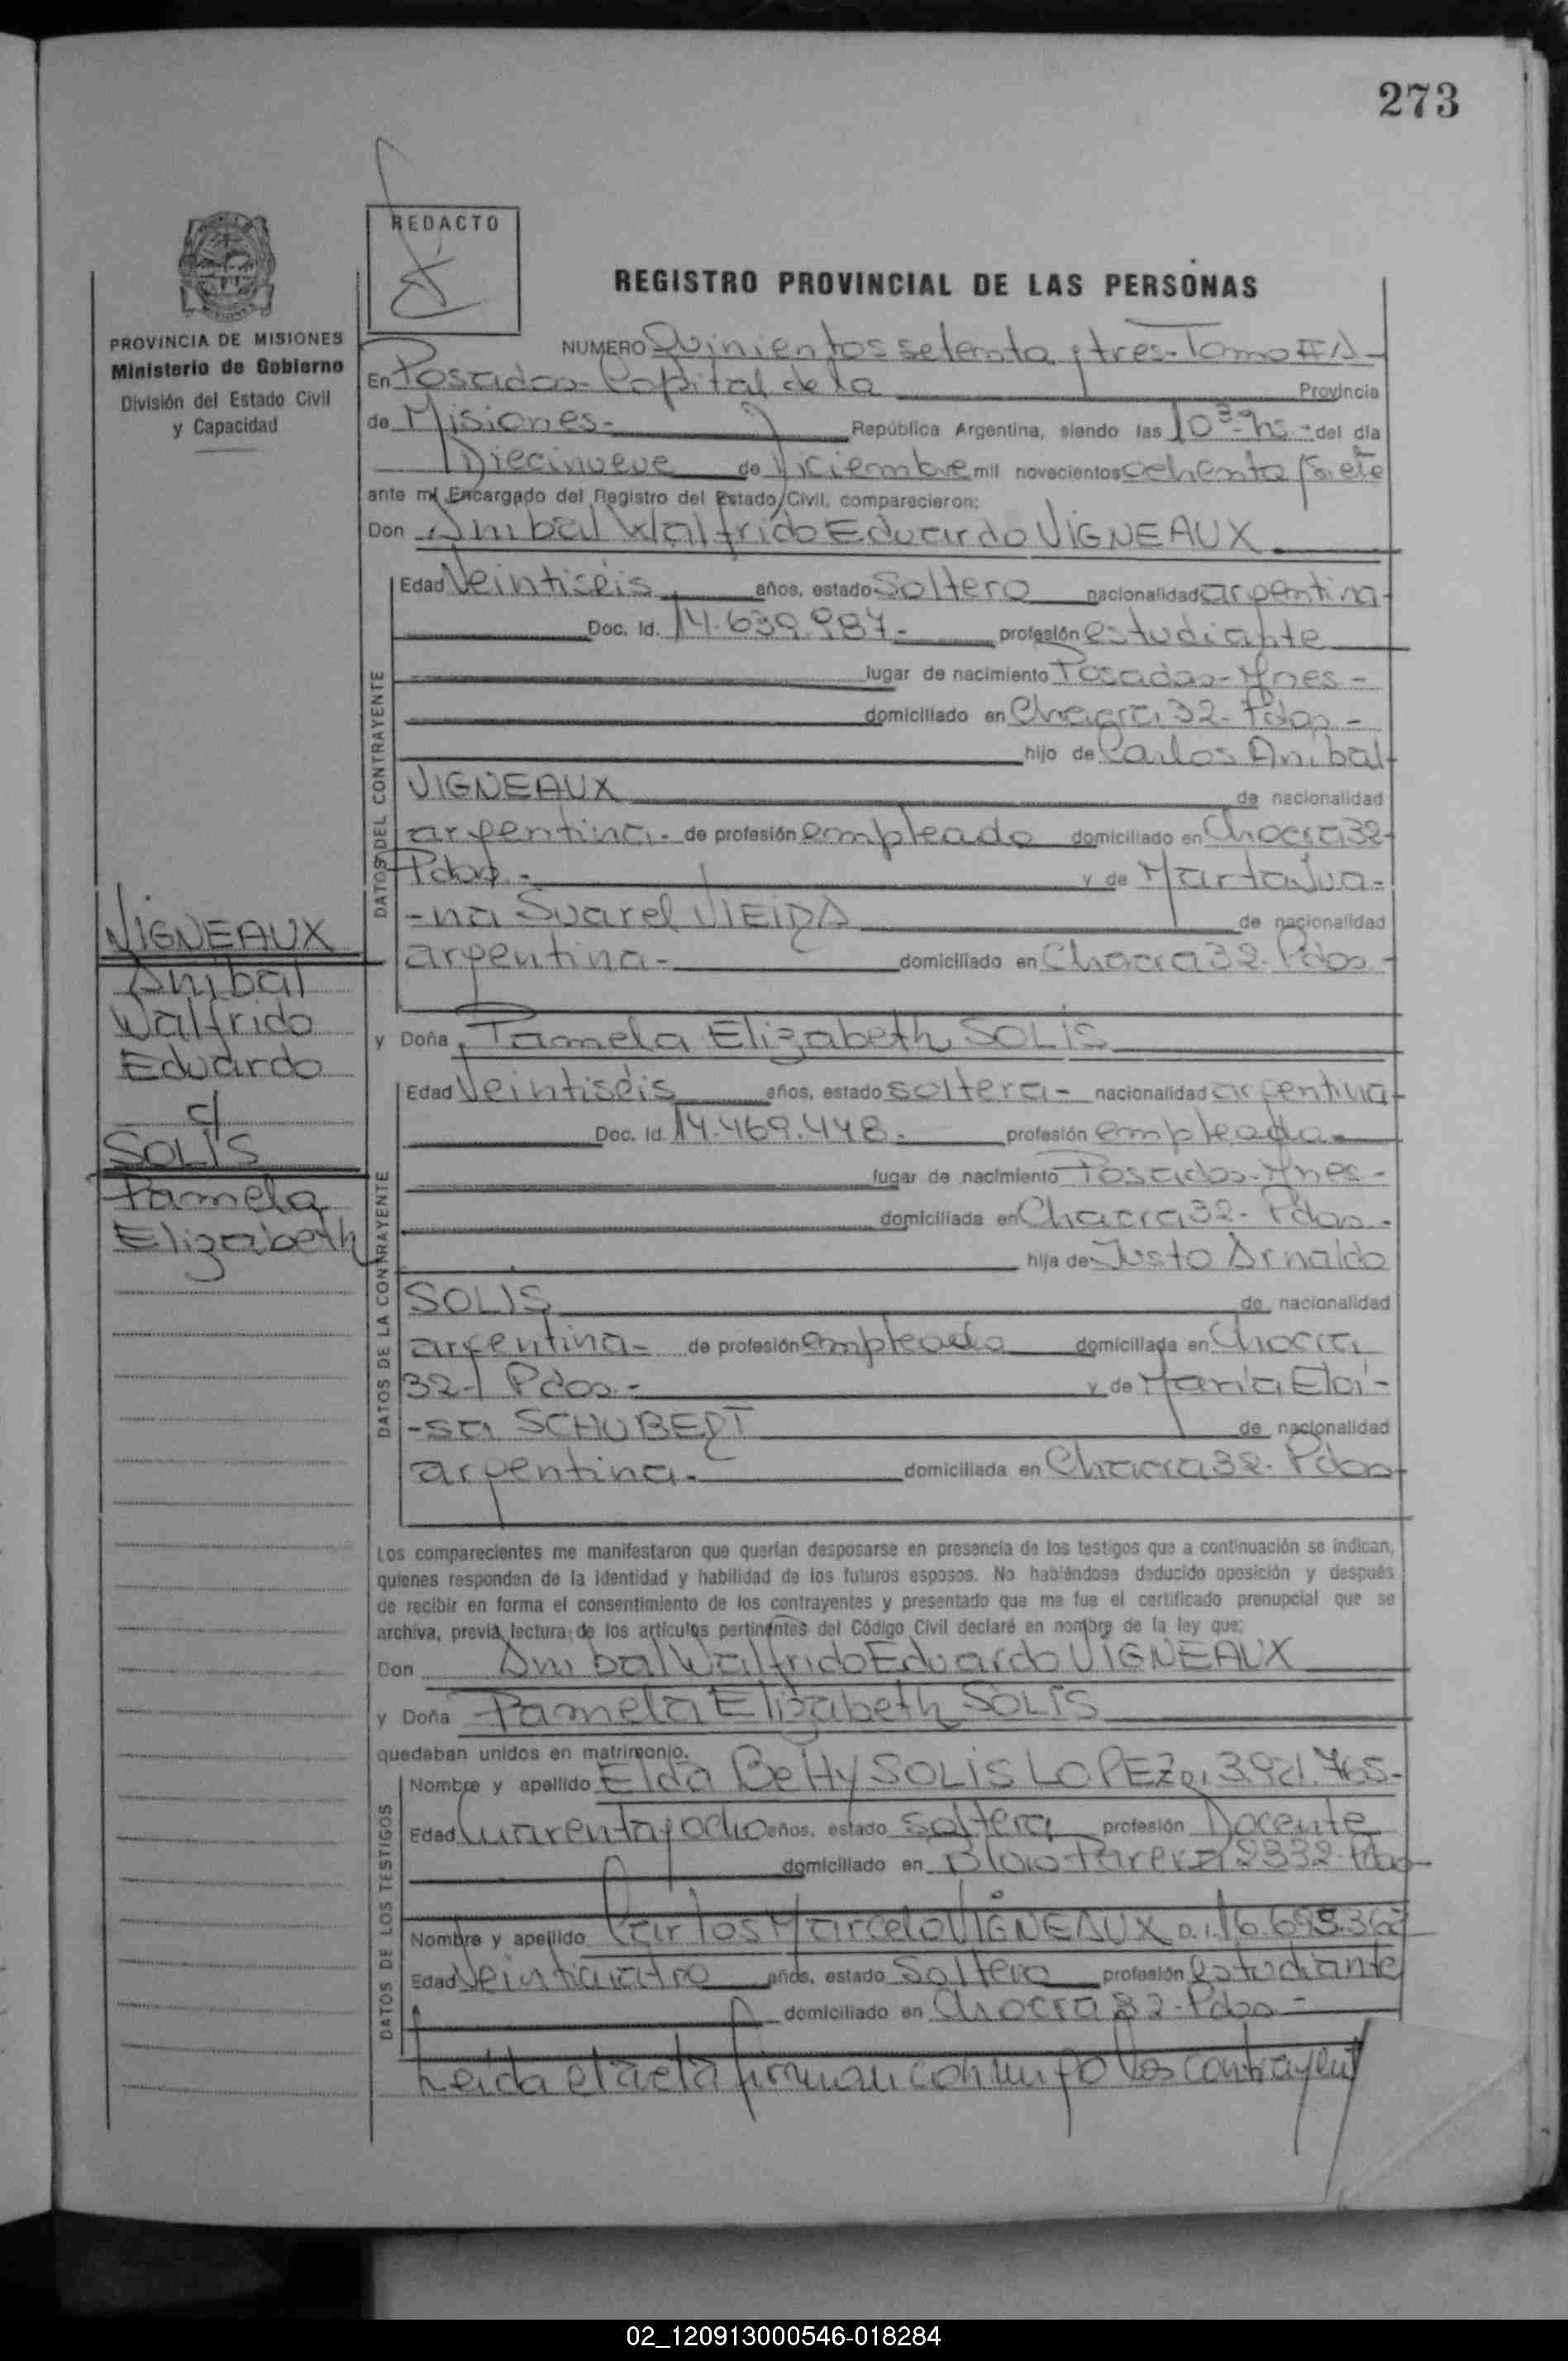 273
REDACTO
REGISTRO PROVINCIAL DE LAS PERSONAS
PROVINCIA DE MISIONES
Ministerio de Gobierno
División del Estado Civil
y Capacidad
NUMERO Quinientos setenta y tres - Tomo
En Posadas - Capital de la Provincia
de Misiones - República Argentina, siendo las 10 hs - del día
Diecinueve de Diciembre mil novecientos ochenta y siete
ante mi Encargado del Registro del Estado Civil, comparecieron:
Don Anibal Walfrido Eduardo VIGNEAUX
Edad Veintiseis años, estado Soltero nacionalidad argentina
Doc. Id. 14.639.987 - profesión estudiante
lugar de nacimiento Posadas - Mnes -
domiciliado en Chacra 32 - Pdas -
hijo de Carlos Anibal
VIGNEAUX de nacionalidad
argentina - de profesión empleado domiciliado en Chacra 32 -
Pdas - y de Marta Jua-
-na Suarel VIEIRA de nacionalidad
argentina - domiciliado en Chacra 32 - Pdas -
VIGNEAUX
Anibal
Walfrido
Eduardo
c/
SOLIS
Pamela
Elizabeth
DATOS DEL CONTRAYENTE
y Doña Pamela Elizabeth SOLIS
Edad Veintiséis años, estado soltera - nacionalidad argentina
Doc. Id. 14.469.448 - profesión empleada -
lugar de nacimiento Posadas - Mnes -
domiciliada en Chacra 32 - Pdas -
hija de Justo Arnaldo
SOLIS de nacionalidad
argentina - de profesión empleado domiciliada en Chacra
32 - Pdas - y de María Eloi-
-sa SCHUBERT de nacionalidad
argentina - domiciliada en Chacra 32 - Pdas
DATOS DE LA CONTRAYENTE
Los comparecientes me manifestaron que querían desposarse en presencia de los testigos que a continuación se indican,
quienes responden de la identidad y habilidad de los futuros esposos. No habiéndose deducido oposición y después
de recibir en forma el consentimiento de los contrayentes y presentado que me fue el certificado prenupcial que se
archiva, previa lectura de los artículos pertinentes del Código Civil declaré en nombre de la ley que:
Don Anibal Walfrido Eduardo VIGNEAUX
y Doña Pamela Elizabeth SOLIS
quedaban unidos en matrimonio.
Nombre y apellido Elda Betty SOLIS LOPEZ
Edad Cuarenta y ocho años, estado soltera profesión Docente
domiciliado en Blas Parera 2332 - Pdas
Nombre y apellido Carlos Marcelo VIGNEAUX
Edad Veinticuatro años, estado Soltero profesión estudiante
domiciliado en Chacra 32 - Pdas -
DATOS DE LOS TESTIGOS
Leida el acta firman conmigo los contrayent
02_120913000546-018284